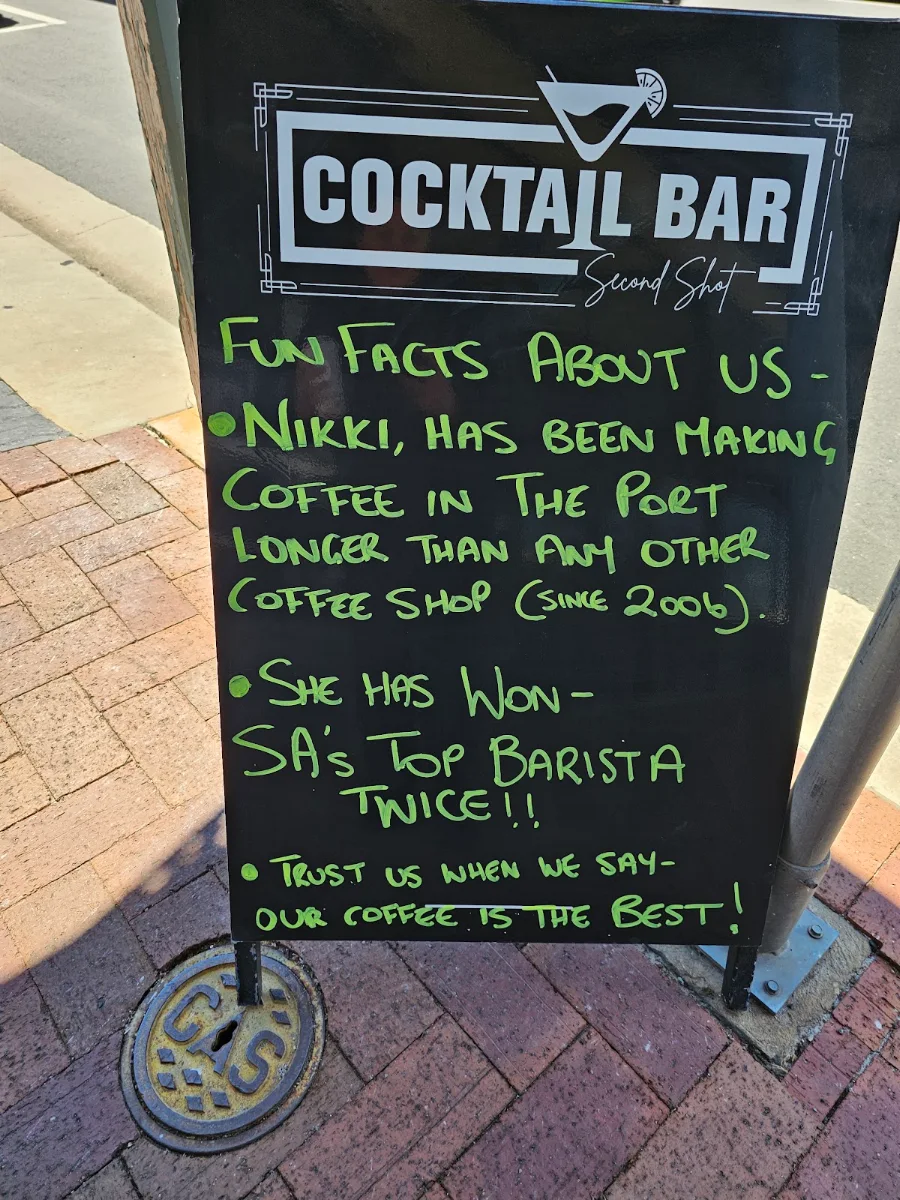 COCKTAIL BAR
Second Shot
FUN FACTS ABOUT US -
• NIKKI, HAS BEEN MAKING
COFFEE IN THE PORT
LONGER THAN ANY OTHER
COFFEE SHOP (SINCE 2006).
• SHE HAS WON -
SA's TOP BARISTA
TWICE!!
• TRUST US WHEN WE SAY -
OUR COFFEE IS THE BEST!
GAS